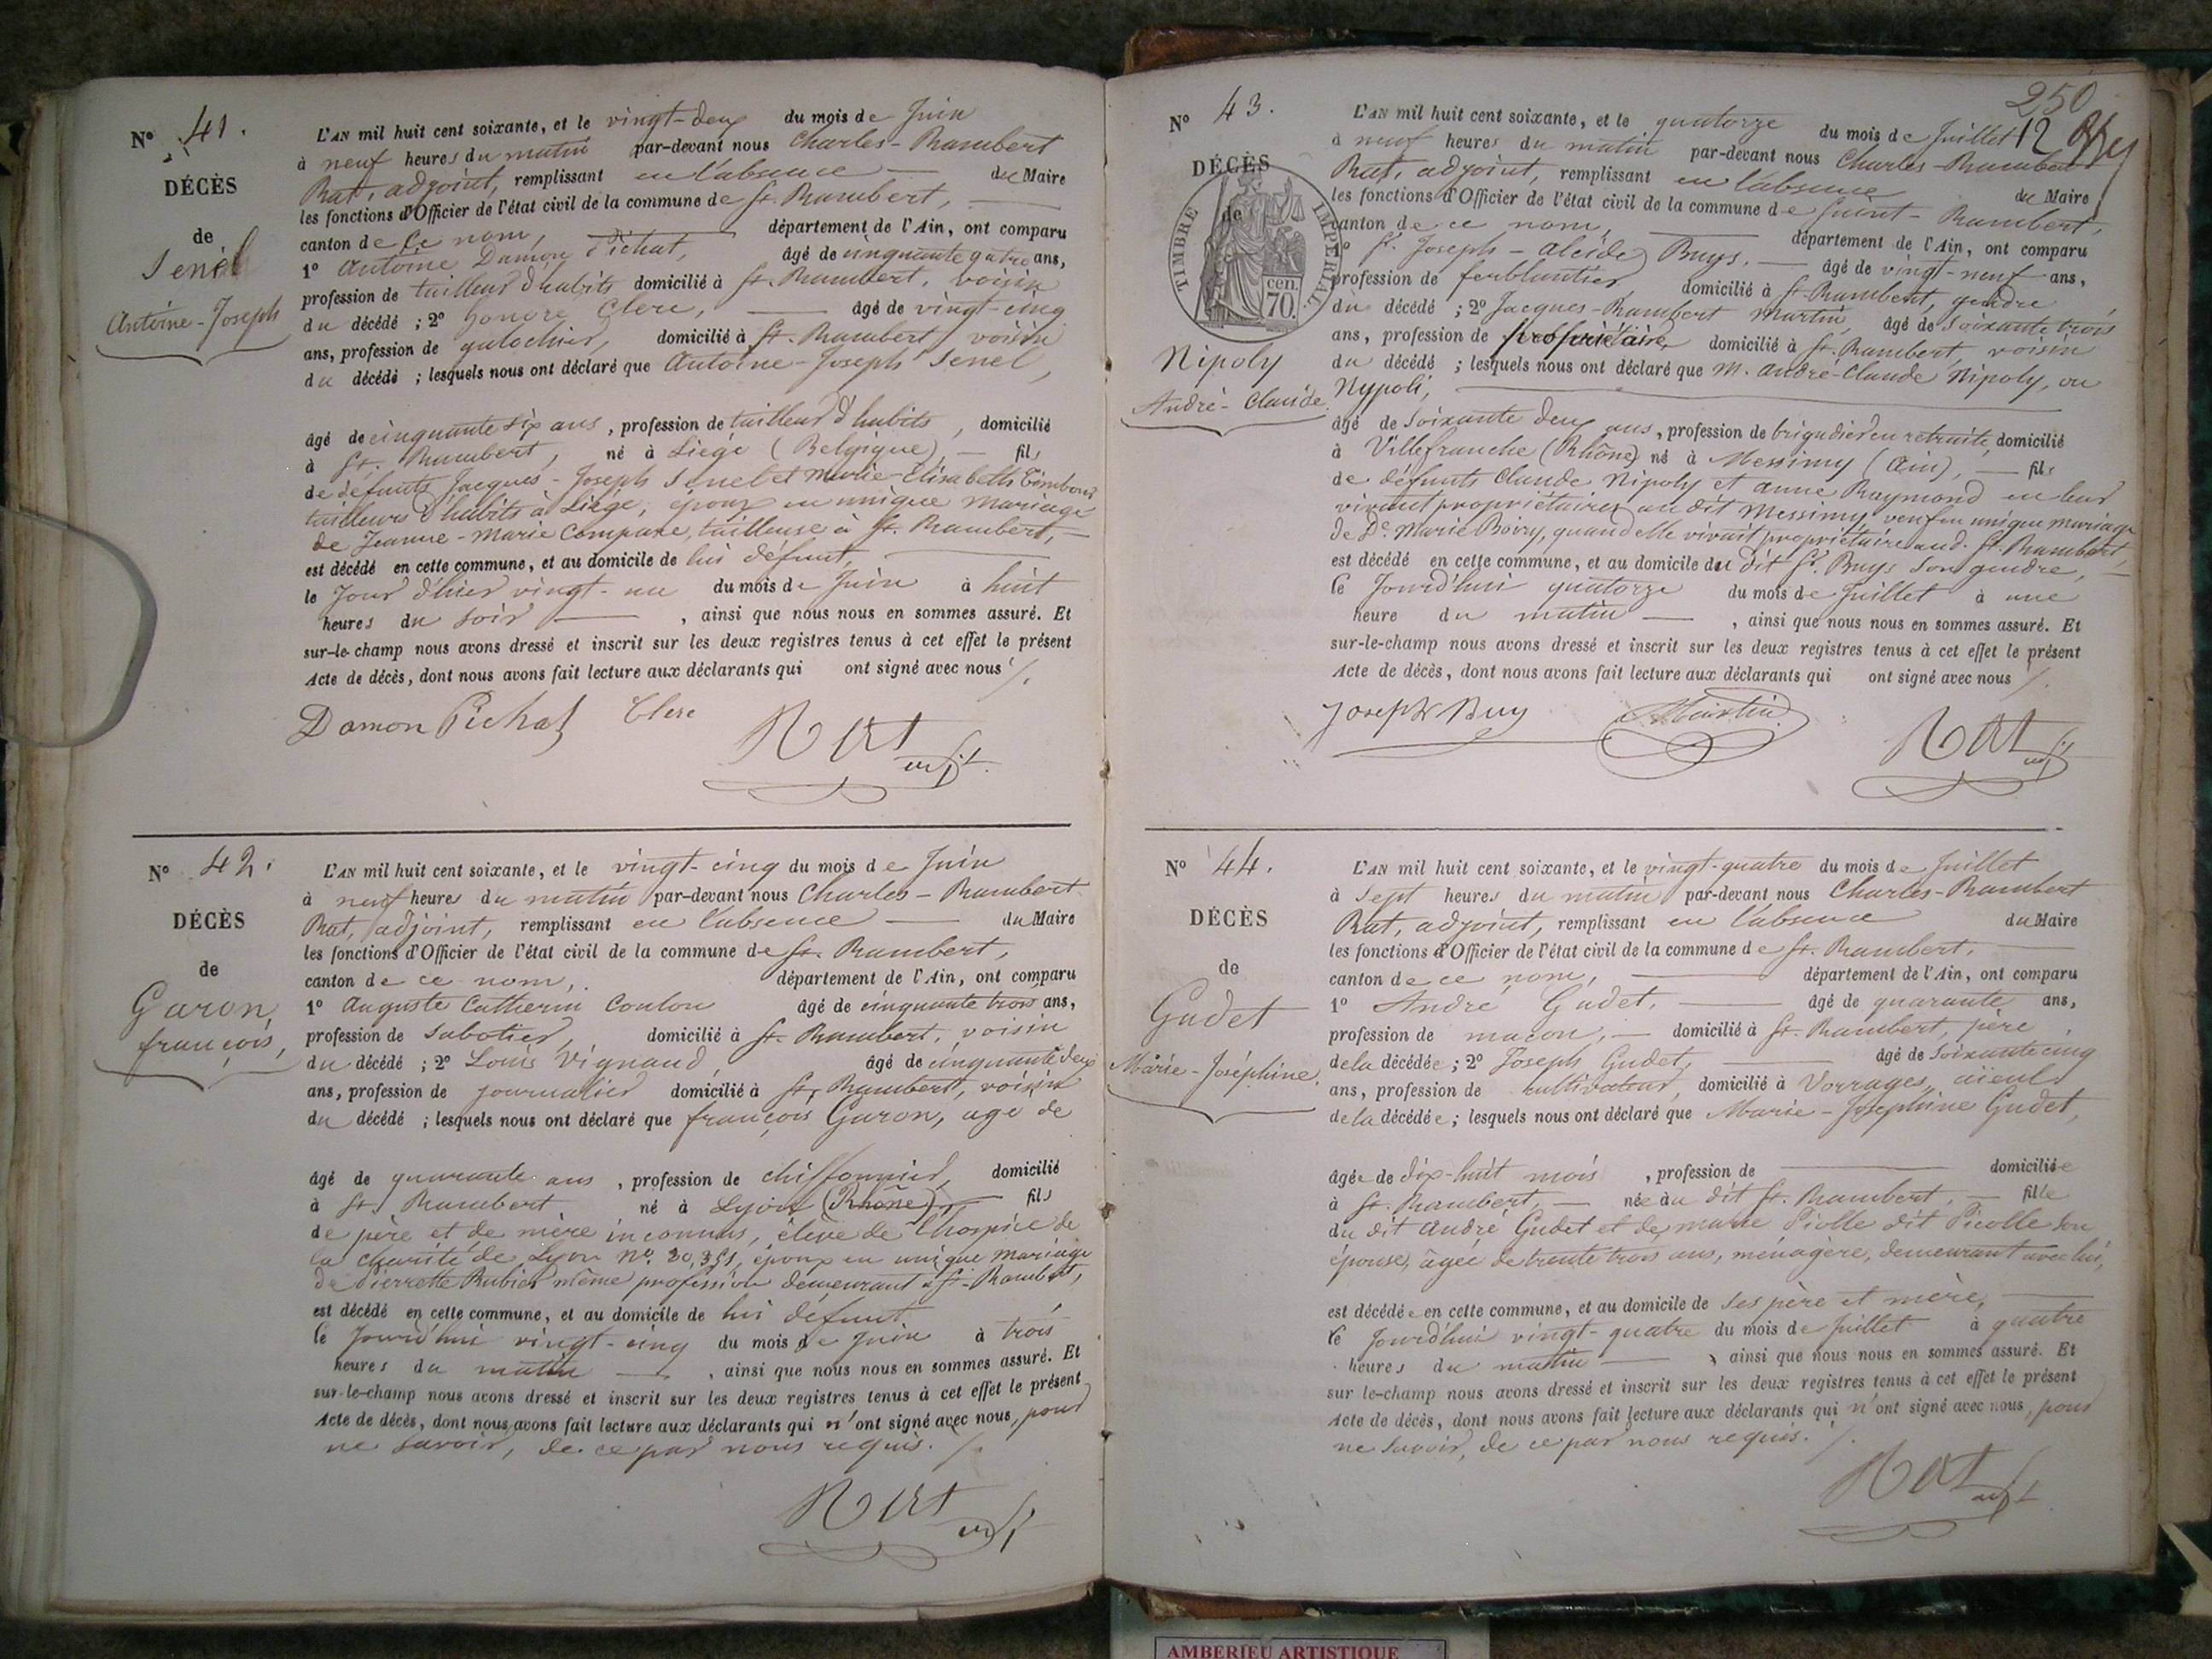 N° 41.
DÉCÈS
de
Senel
Antoine-Joseph
L'AN mil huit cent soixante, et le vingt-deux du mois de Juin
à neuf heures du matin par-devant nous Charles-Rambert
Rat, adjoint, remplissant en l'absence du Maire
les fonctions d'Officier de l'état civil de la commune de St. Rambert,
canton de ce nom, département de l'Ain, ont comparu
1° Antoine Damon Pichat, âgé de cinquante quatre ans,
profession de tailleur d'habits domicilié à St. Rambert, voisin
du décédé ; 2° honoré Clerc, âgé de vingt-cinq
ans, profession de galochier, domicilié à St. Rambert, voisin
du décédé ; lesquels nous ont déclaré que Antoine-Joseph Senel,
âgé de cinquante six ans, profession de tailleur d'habits, domicilié
à St. Rambert, né à Liège (Belgique), fils
de défunts Jacques-Joseph Senel et Marie-Elisabeth
tailleurs d'habits à Liège, époux en unique mariage
de Jeanne-Marie Compare, tailleuse à St. Rambert,
est décédé en cette commune, et au domicile de lui défunt,
le Jour d'hier vingt-un du mois de Juin à huit
heures du soir , ainsi que nous nous en sommes assuré. Et
sur-le-champ nous avons dressé et inscrit sur les deux registres tenus à cet effet le présent
Acte de décès, dont nous avons fait lecture aux déclarants qui ont signé avec nous ./.
Damon Pichat Clerc
Rat adjt.
N° 42.
DÉCÈS
de
Garon,
françois,
L'AN mil huit cent soixante, et le vingt-cinq du mois de Juin
à neuf heures du matin par-devant nous Charles-Rambert
Rat, adjoint, remplissant en l'absence du Maire
les fonctions d'Officier de l'état civil de la commune de St. Rambert,
canton de ce nom, département de l'Ain, ont comparu
1° Auguste Catherin Coulon âgé de cinquante trois ans,
profession de Sabotier, domicilié à St. Rambert, voisin
du décédé ; 2° Louis Vignaud, âgé de cinquante deux
ans, profession de journalier domicilié à St. Rambert, voisin
du décédé ; lesquels nous ont déclaré que françois Garon, agé de
âgé de quarante ans, profession de chiffonnier, domicilié
à St. Rambert né à Lyon (Rhône), fils
de père et de mère inconnus, élève de l'hospice de
la charité de Lyon N°. époux en unique mariage
de Pierrette Rubier même profession demeurant à St-Rambert,
est décédé en cette commune, et au domicile de lui défunt,
le Jourd'hui vingt-cinq du mois de Juin à trois
heures du matin , ainsi que nous nous en sommes assuré. Et
sur-le-champ nous avons dressé et inscrit sur les deux registres tenus à cet effet le présent
Acte de décès, dont nous avons fait lecture aux déclarants qui n'ont signé avec nous, pour
ne savoir, de ce par nous requis. ./.
Rat adjt
250
12
N° 43.
DÉCÈS
de
TIMBRE IMPÉRIAL
70 cen.
Nipoly
André-Claude.
L'AN mil huit cent soixante, et le quatorze du mois de Juillet
à neuf heures du matin par-devant nous Charles-Rambert
Rat, adjoint, remplissant en l'absence du Maire
les fonctions d'Officier de l'état civil de la commune de Saint-Rambert,
canton de ce nom, département de l'Ain, ont comparu
1° Sr. Joseph-Alcide Buys, âgé de vingt-neuf ans,
profession de ferblantier, domicilié à St-Rambert, gendre
du décédé ; 2° Jacques-Rambert Martin, âgé de Soixante trois
ans, profession de propriétaire, domicilié à St. Rambert, voisin
du décédé ; lesquels nous ont déclaré que M. André-Claude Nipoly, ou
Nypoli,
âgé de Soixante deux ans, profession de brigadier en retraite, domicilié
à Villefranche (Rhône) né à Messimy (Ain), fils
de défunts Claude Nipoly et Anne Raymond en leur
vivant propriétaires au dit Messimy, veuf en unique mariage
de De. Marie Boiry, quand elle vivait propriétaire aud. St. Rambert,
est décédé en cette commune, et au domicile du dit Sr. Buys son gendre,
le Jourd'hui quatorze du mois de Juillet à une
heure du matin , ainsi que nous nous en sommes assuré. Et
sur-le-champ nous avons dressé et inscrit sur les deux registres tenus à cet effet le présent
Acte de décès, dont nous avons fait lecture aux déclarants qui ont signé avec nous ./.
Joseph Buy Martin
Rat adjt
N° 44.
DÉCÈS
de
Gudet
Marie-Joséphine.
L'AN mil huit cent soixante, et le vingt-quatre du mois de Juillet
à Sept heures du matin par-devant nous Charles-Rambert
Rat, adjoint, remplissant en l'absence du Maire
les fonctions d'Officier de l'état civil de la commune de St. Rambert,
canton de ce nom, département de l'Ain, ont comparu
1° André Gudet, âgé de quarante ans,
profession de maçon, domicilié à St. Rambert, père
de la décédée ; 2° Joseph Gudet, âgé de Soixante cinq
ans, profession de cultivateur, domicilié à Vorrages, aïeul
de la décédée ; lesquels nous ont déclaré que Marie-Josephine Gudet,
âgée de dix-huit mois , profession de domiciliée
à St. Rambert, née au dit St. Rambert, fille
du dit André Gudet et de Marie Piolle dit Picolle son
épouse, âgée de trente trois ans, ménagère, demeurant avec lui,
est décédée en cette commune, et au domicile de ses père et mère,
le Jourd'hui vingt-quatre du mois de Juillet à quatre
heures du matin , ainsi que nous nous en sommes assuré. Et
sur le-champ nous avons dressé et inscrit sur les deux registres tenus à cet effet le présent
Acte de décès, dont nous avons fait lecture aux déclarants qui n'ont signé avec nous, pour
ne savoir, de ce par nous requis. ./.
Rat adjt
AMBERIEU ARTISTIQUE